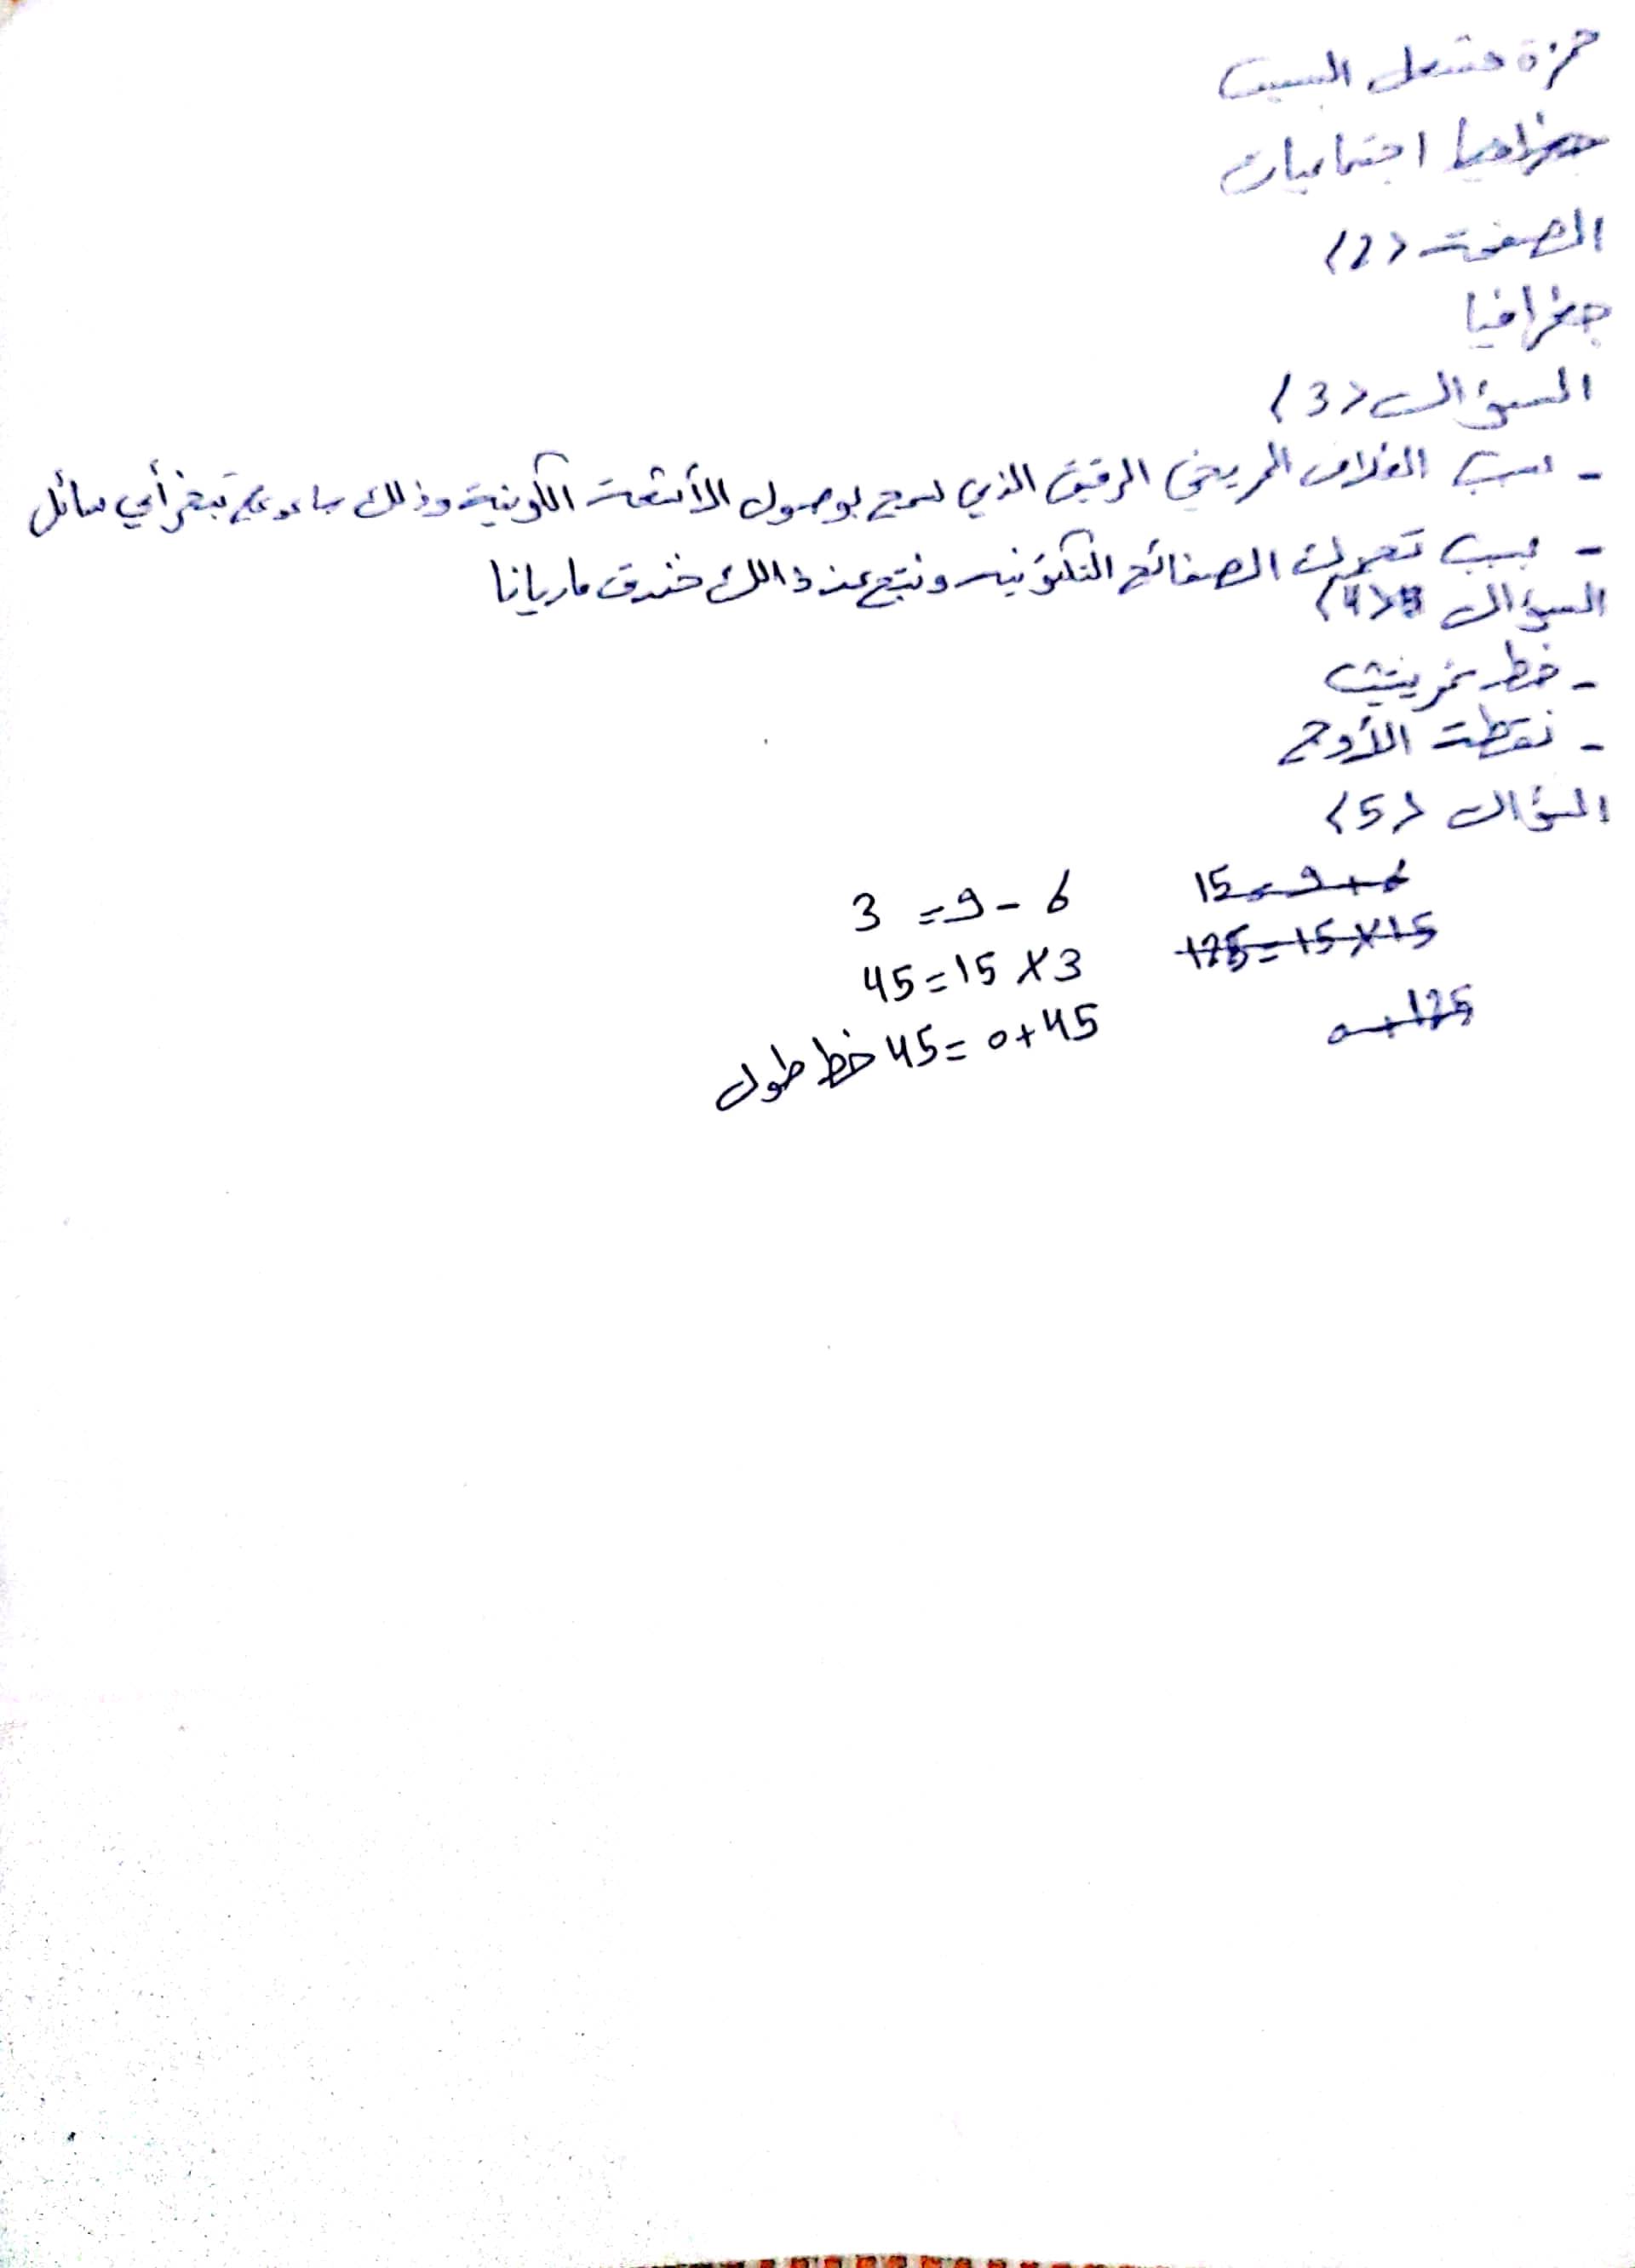 حمزة مشعل السبيب
جغرافيا اجتماعيات
الصفحة (2)
جغرافيا
السؤال (3)
- بسبب الغلاف المريخي الرقيق الذي يسمح بوصول الأشعة الكونية وذلك يؤدي تبخر أي سائل
- بسبب تحرك الصفائح التكتونية ونتج عند ذالك خندق ماريانا
السؤال (4)
- خط غرينتش
- نقطة الأوج
السؤال (5)
15 = 9 + 6
125 = 15 × 15
0 + 125
3 = 9 - 6
45 = 15 × 3
45 = 0 + 45 خط طول